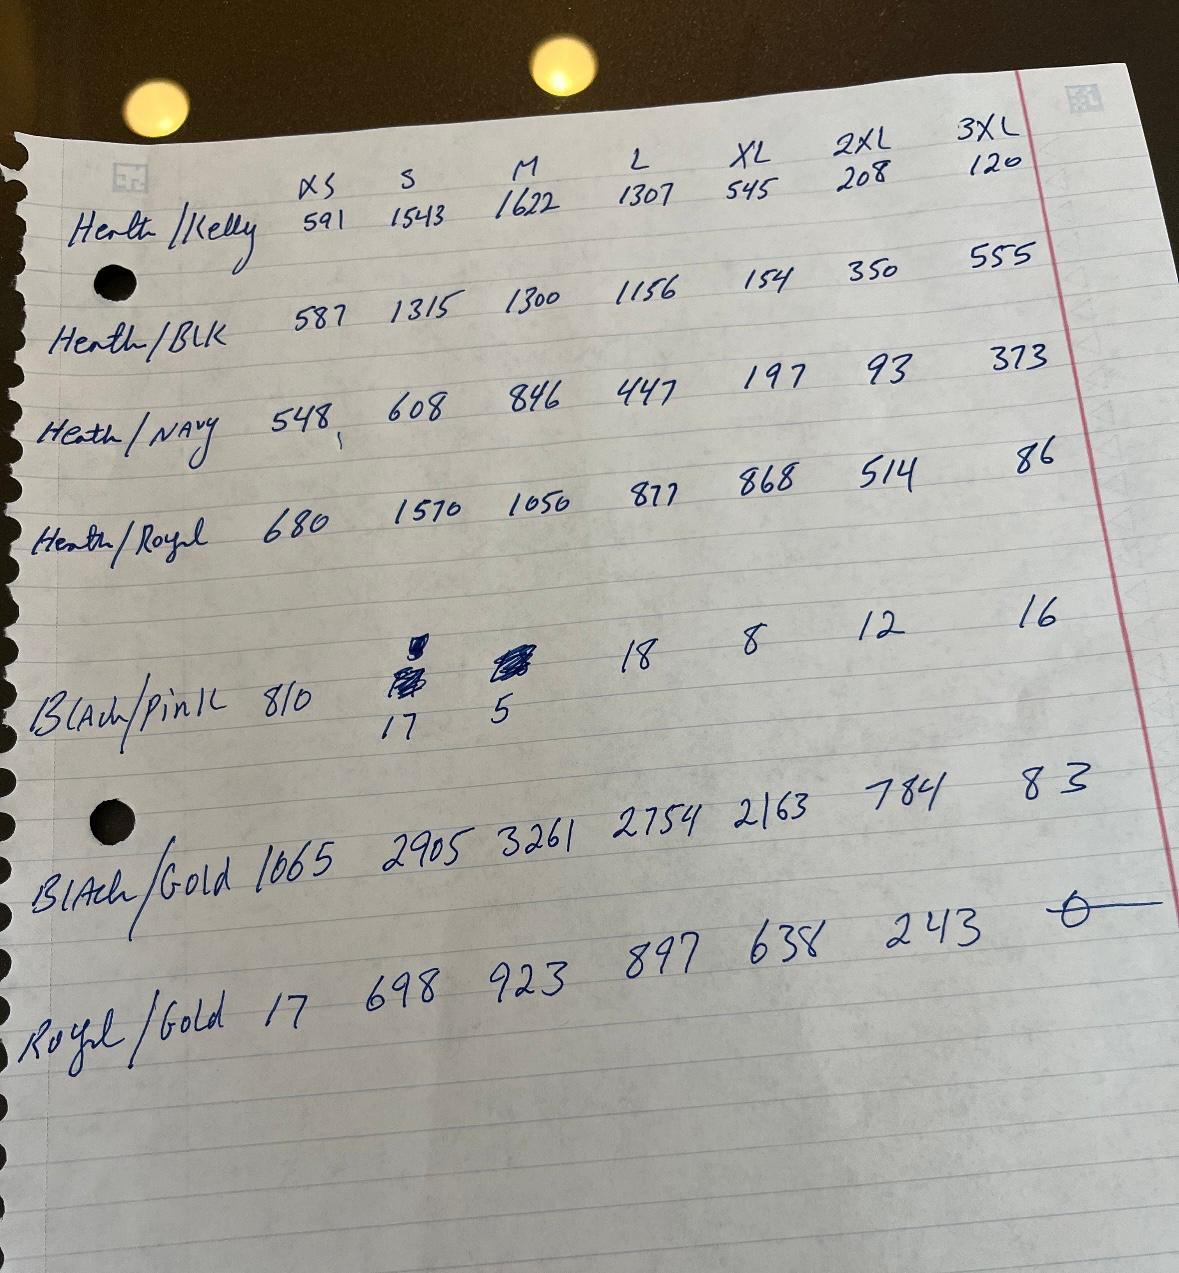 XS S M L XL 2XL 3XL
Heath/Kelly 591 1543 1622 1307 545 208 120
Heath/BLK 587 1315 1300 1156 154 350 555
Heath/NAvy 548 608 846 447 197 93 373
Heath/Royal 680 1570 1050 877 868 514 86
BLAck/Pink 810 17 5 18 8 12 16
BLAck/Gold 1065 2905 3261 2754 2163 784 83
Royal/Gold 17 698 923 897 638 243 0